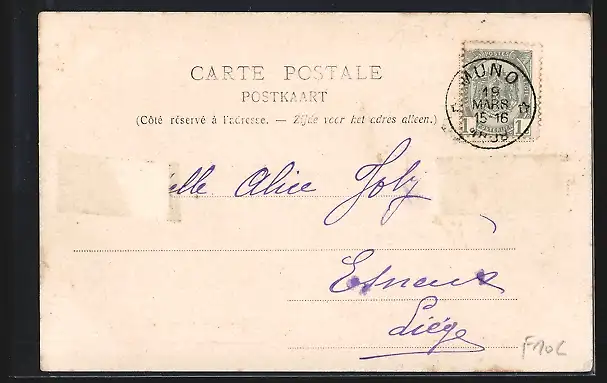 CARTE POSTALE
POSTKAART
(Côté réservé à l'adresse. — Zijde voor het adres alleen.)
MUNO
19
MARS
15-16
1 1
elle Alice Joly
Esneux
Liége